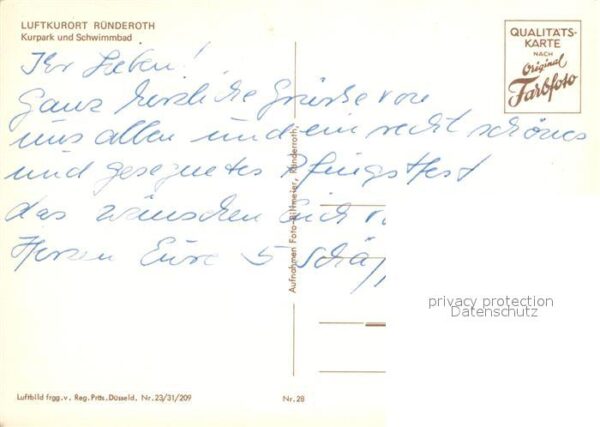 LUFTKURORT RÜNDEROTH
Kurpark und Schwimmbad
QUALITÄTS-
KARTE
NACH
Original
Farbfoto
Ihr Lieben!
Ganz herzliche Grüße von
uns allen und ein recht schönes
und gesegnetes Pfingstfest
das wünschen Euch v
Herzen Eure 5 Schäf
Aufnahmen Foto-Rittmeier, Ründeroth,
privacy protection
Datenschutz
Luftbild frgg.v. Reg. Präs. Düsseld. Nr. 23/31/209
Nr. 28